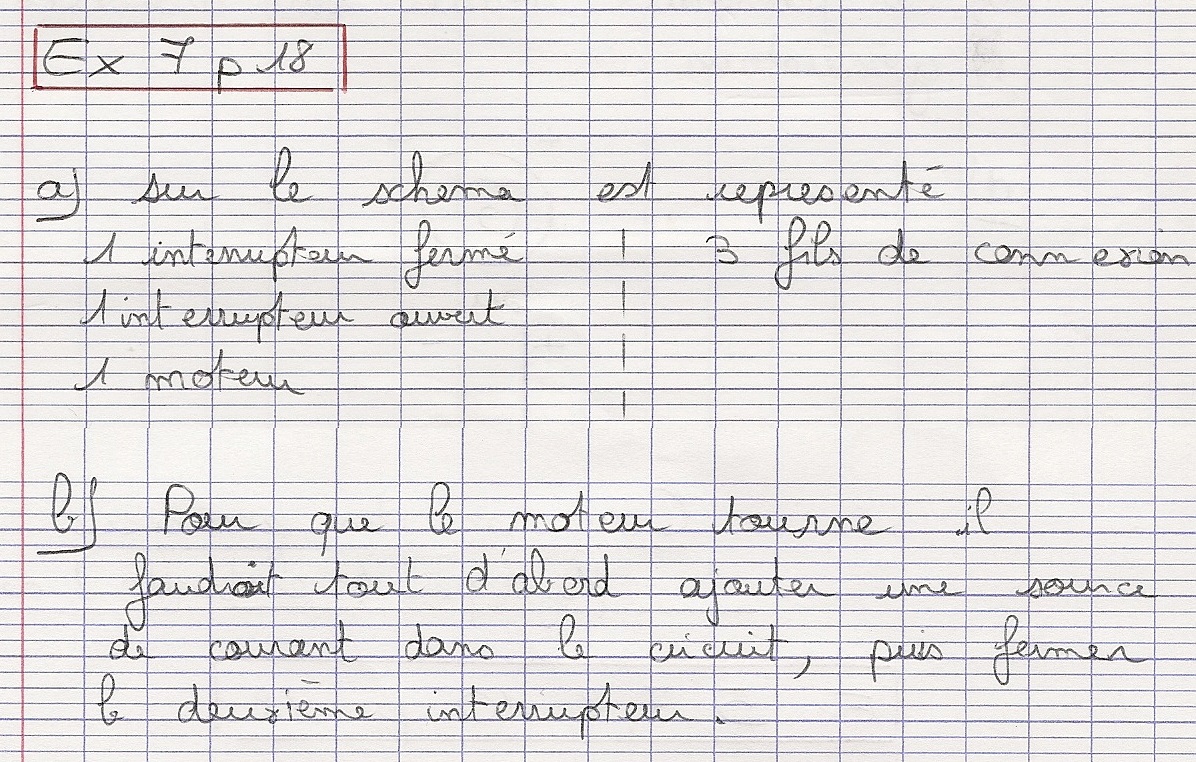 Ex 7 p 18
a) sur le schema est representé
1 interrupteur fermé | 3 fils de connexion
1 interrupteur ouvert |
1 moteur |
b) Pour que le moteur tourne il
faudrait tout d'abord ajouter une source
de courant dans le circuit, puis fermer
le deuxième interrupteur.